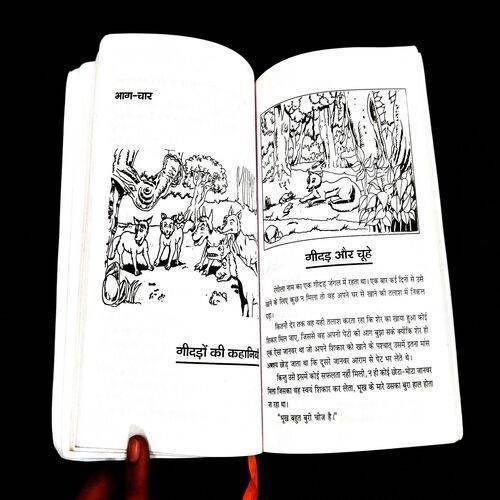 भाग-चार
गीदड़ों की कहानियाँ
गीदड़ और चूहे
रंगीला नाम का एक गीदड़ जंगल में रहता था। एक बार कई दिनों से उसे
खाने के लिए कुछ न मिला तो वह अपने घर से खाने की तलाश में निकल
पड़ा।
कितनी देर तक वह यही तलाश करता रहा कि शेर का खाया हुआ कोई
शिकार मिल जाए, जिससे वह अपनी पेटी की आग बुझा सके क्योंकि शेर ही
एक ऐसा जानवर था जो अपने शिकार को खाने के पश्चात् उसमें इतना मांस
अवश्य छोड़ जाता था कि दूसरे जानवर आराम से पेट भर लेते थे।
किन्तु उसे इसमें कोई सफलता नहीं मिली, न ही कोई छोटा-मोटा जानवर
मिला जिसका वह स्वयं शिकार कर लेता, भूख के मारे उसका बुरा हाल होता
जा रहा था।
"भूख बहुत बुरी चीज है।"